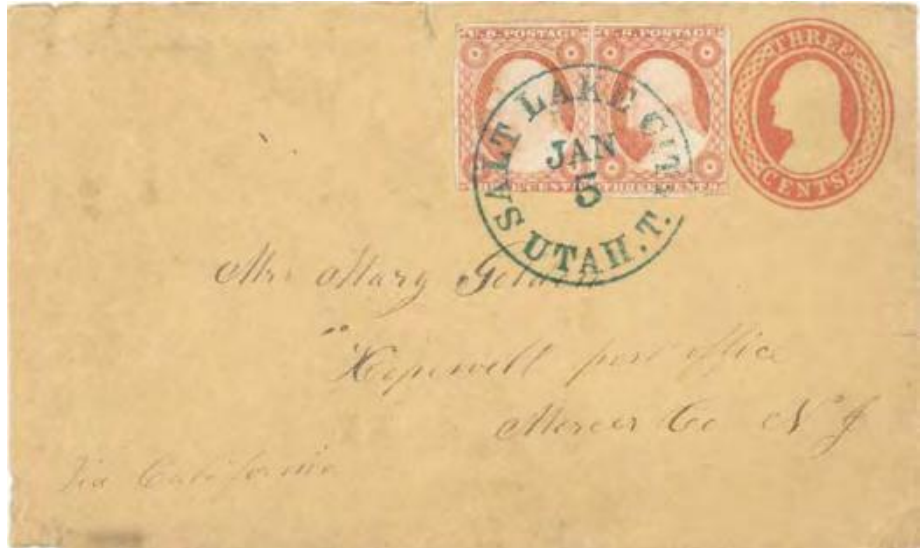 U.S. POSTAGE U.S. POSTAGE
THREE CENTS
THREE CENTS
SALT LAKE CITY
JAN
5
UTAH.T.
Mrs Mary
Hopewell post office
Mercer Co N.J
Via California